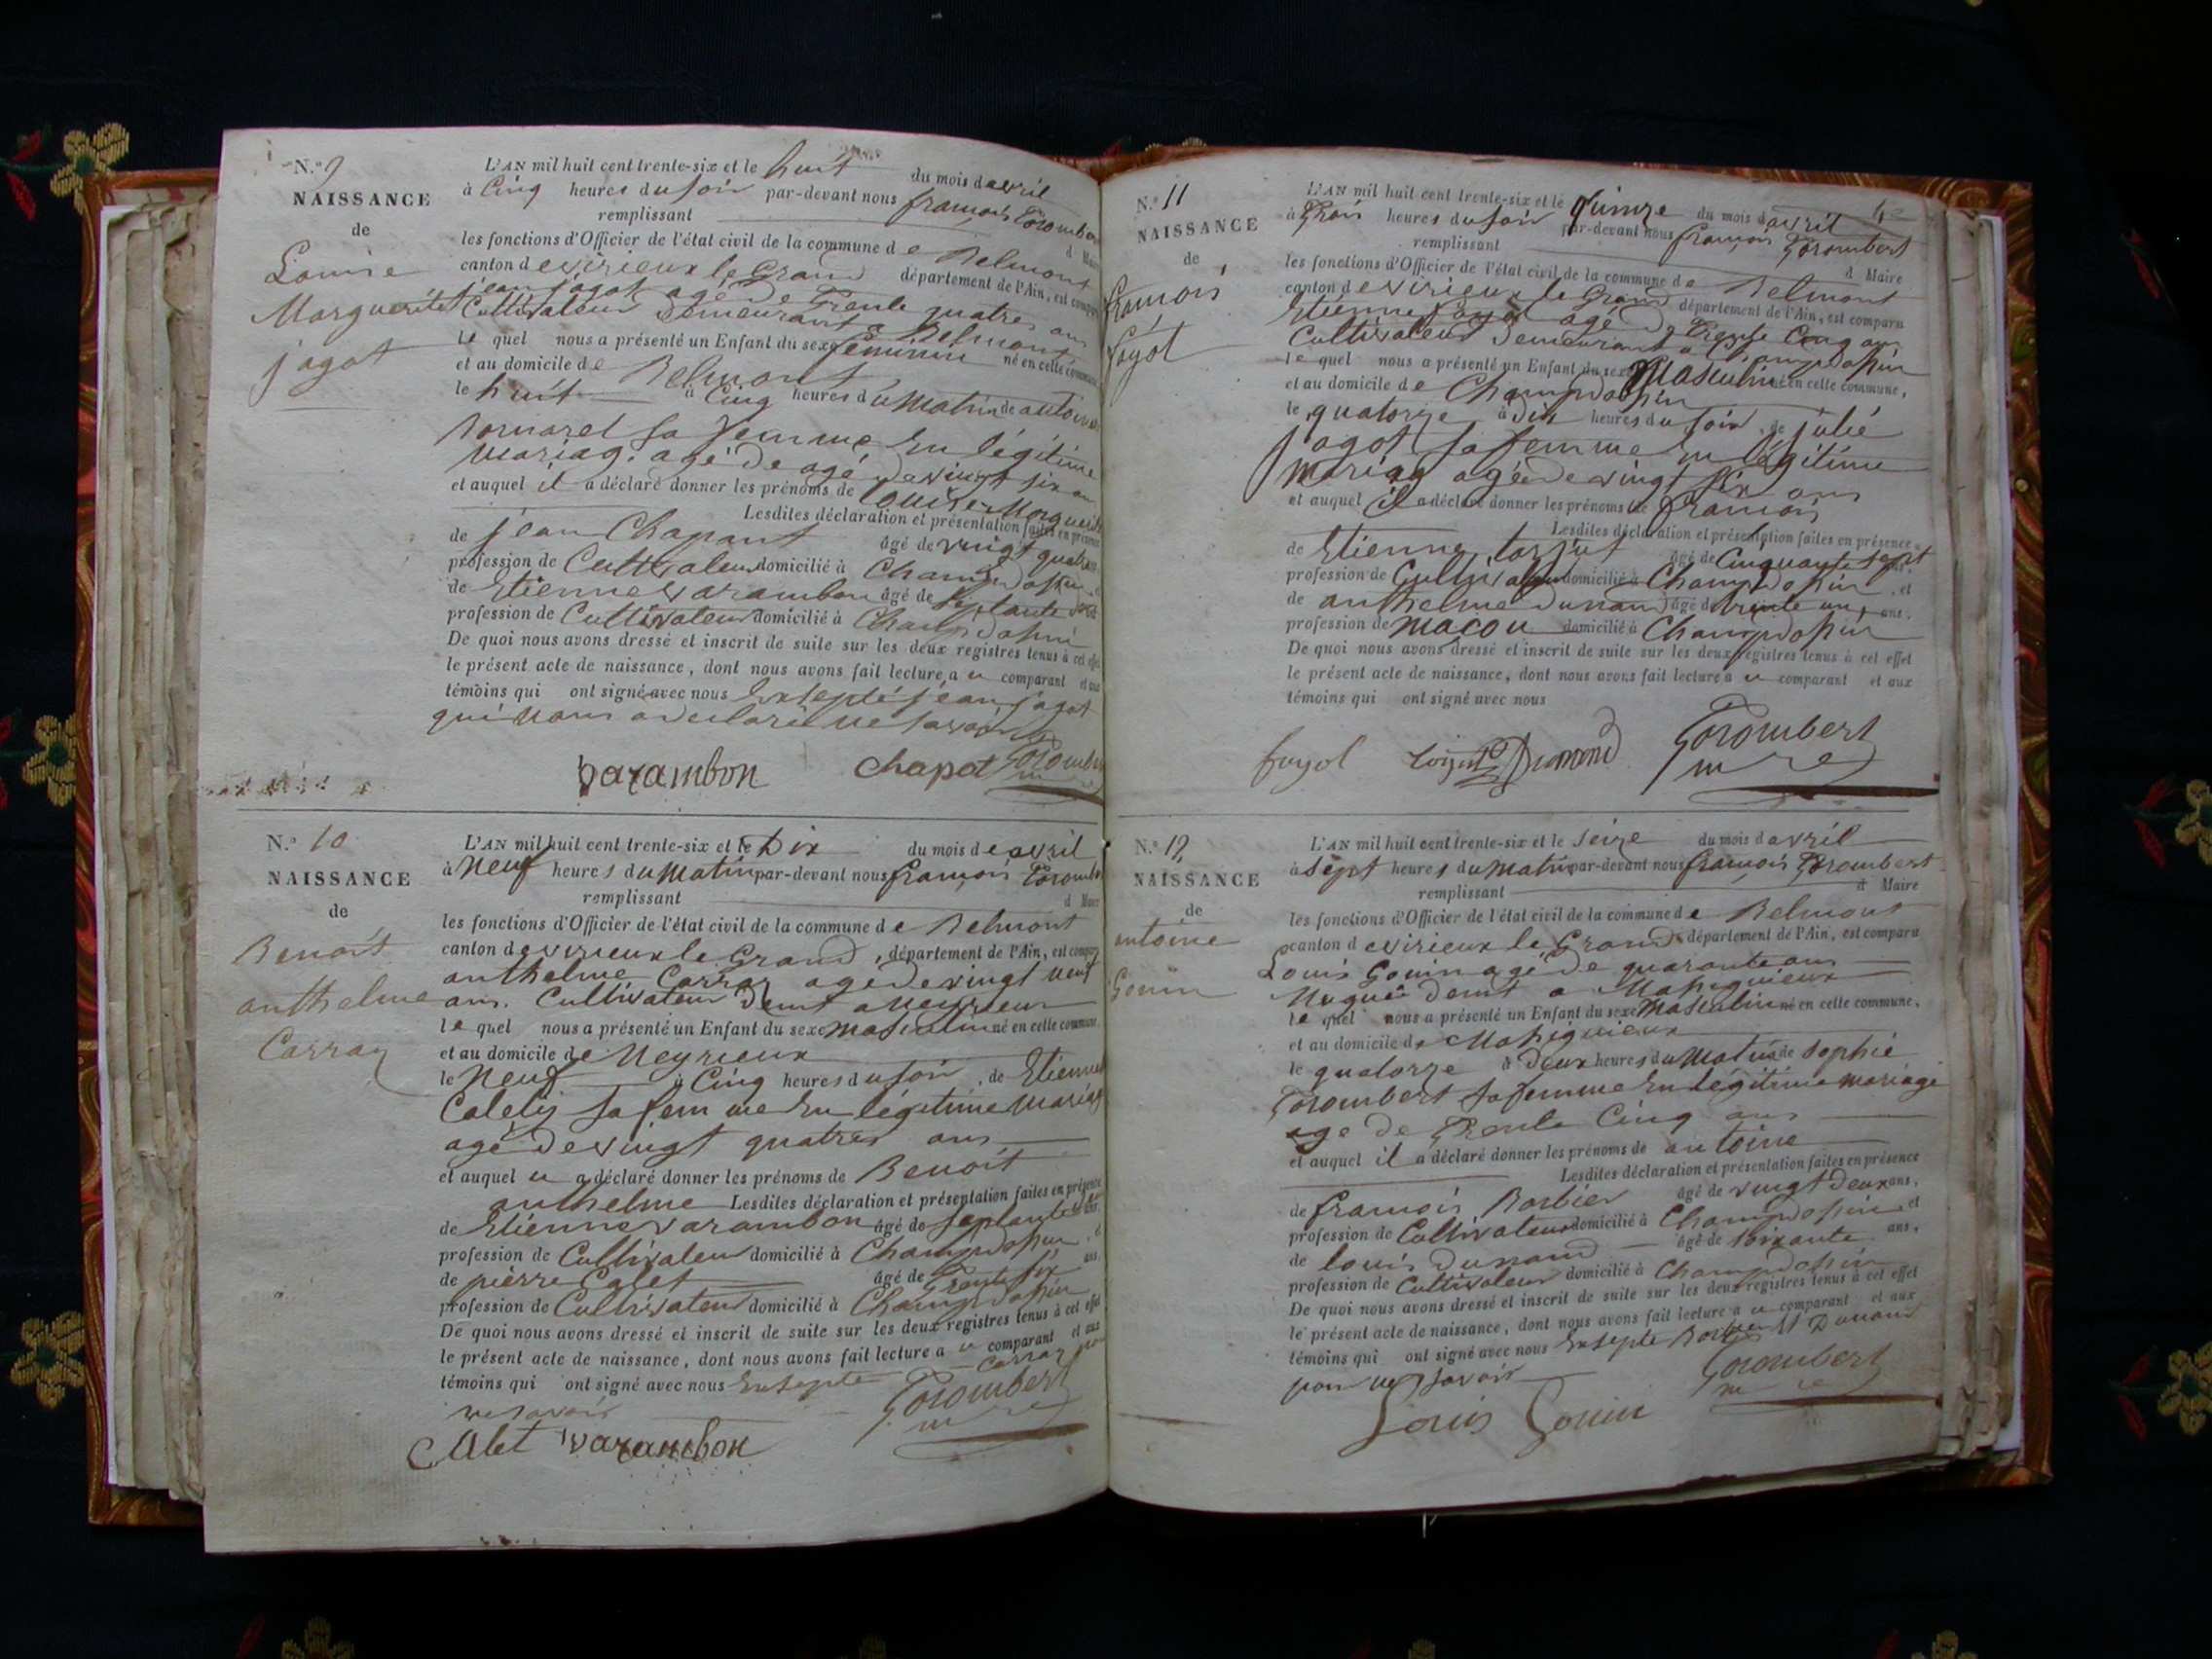 N.º 9
NAISSANCE
de
Louise
Marguerite
jagot
L'AN mil huit cent trente-six et le huit du mois d avril
à Cinq heures du soir par-devant nous françois Torombert
remplissant d Maire
les fonctions d'Officier de l'état civil de la commune de Belmont
canton de virieux le Grand département de l'Ain, est comparu
jean jagot agé de Trente quatres ans
Cultivateur Demeurant a Belmont
le quel nous a présenté un Enfant du sexe féminin né en cette commune
et au domicile de Belmont
le huit à Cinq heures du Matin de antoinette
sa femme En légitime
Mariag. agé de agé de vingt six ans
et auquel il a déclaré donner les prénoms de Louise Marguerite
Lesdites déclaration et présentation faites en présence
de jean Chapant âgé de vingt quatre
profession de Cultivateur domicilié à Champdossin
de Etienne varambon âgé de septante
profession de Cultivateur domicilié à Champdossin
De quoi nous avons dressé et inscrit de suite sur les deux registres tenus à cet effet
le présent acte de naissance, dont nous avons fait lecture a u comparant et aux
témoins qui ont signé avec nous Exsepté jean jagot
qui nous a declaré ne savoir
varambon chapot Torombert
N.º 10
NAISSANCE
de
Benoit
anthelme
Carraz
L'AN mil huit cent trente-six et le Dix du mois de avril
à Neuf heures du Matin par-devant nous françois Torombert
remplissant d Maire
les fonctions d'Officier de l'état civil de la commune de Belmont
canton de virieux le Grand, département de l'Ain, est comparu
anthelme Carraz agé de vingt neuf
ans. Cultivateur Demt a Neyrieux
le quel nous a présenté un Enfant du sexe masculin né en cette commune.
et au domicile de Neyrieux
le Neuf à Cinq heures du soir, de Etiennette
sa femme En légitime Mariag
agé de vingt quatres ans
et auquel il a déclaré donner les prénoms de Benoit
anthelme Lesdites déclaration et présentation faites en présence
de Etienne varambon âgé de septante
profession de Cultivateur domicilié à Champdossin
de pierre Calet âgé de Trente six ans.
profession de Cultivateur domicilié à Champdossin
De quoi nous avons dressé et inscrit de suite sur les deux registres tenus à cet effet
le présent acte de naissance, dont nous avons fait lecture a u comparant et aux
témoins qui ont signé avec nous Exsepte Carraz pour
ne savoir Torombert
Calet varambon
N.º 11
NAISSANCE
de
françois
foyot
L'AN mil huit cent trente-six et le quinze du mois d avril
à Trois heures du soir par-devant nous françois Torombert
remplissant d Maire
les fonctions d'Officier de l'état civil de la commune de Belmont
canton de virieux le Grand département de l'Ain, est comparu
Etienne agé de Trente Cinq ans
Cultivateur Demeurant a Champdossin
le quel nous a présenté un Enfant du sexe Masculin né en cette commune,
et au domicile de Champdossin
le quatorze à Dix heures du soir, de julie
jagot sa femme en légitime
Mariag agée de vingt six ans
et auquel il a déclaré donner les prénoms de françois
Lesdites déclaration et présentation faites en présence
de Etienne âgé de Cinquante sept
profession de Cultivateur domicilié à Champdossin, et
de anthelme Dunand âgé de trente un, ans.
profession de Macon domicilié à Champdossin
De quoi nous avons dressé et inscrit de suite sur les deux registres tenus à cet effet
le présent acte de naissance, dont nous avons fait lecture a u comparant et aux
témoins qui ont signé avec nous
Torombert
N.º 12
NAISSANCE
de
antoine
Gouin
L'AN mil huit cent trente-six et le Seize du mois d avril
à sept heures du Matin par-devant nous françois Torombert
remplissant d Maire
les fonctions d'Officier de l'état civil de la commune de Belmont
canton de virieux le Grand département de l'Ain, est comparu
Louis Gouin agé de quarante ans
demt a
le quel nous a présenté un Enfant du sexe Masculin né en cette commune,
et au domicile de
le quatorze à deux heures du Matin de Sophie
Torombert sa femme En légitime Mariage
age de Trente Cinq ans
et auquel il a déclaré donner les prénoms de antoine
Lesdites déclaration et présentation faites en présence
de françois Barbier âgé de vingt Deux ans,
profession de Cultivateur domicilié à Champdossin et
de louis Dunand âgé de soixante ans,
profession de Cultivateur domicilié à Champdossin
De quoi nous avons dressé et inscrit de suite sur les deux registres tenus à cet effet
le présent acte de naissance, dont nous avons fait lecture a u comparant et aux
témoins qui ont signé avec nous Exsepte Barbier et Dunand
pour ne savoir Torombert
Louis Gouin